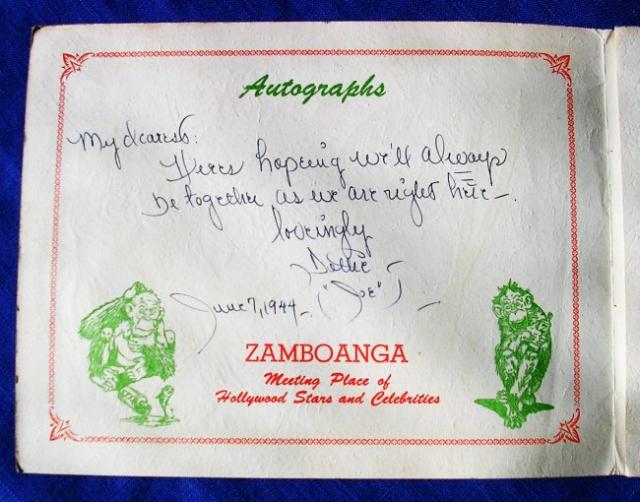 Autographs
My dearest:
Heres hopeing we'll always
be together as we are right here—.
loveingly
Dottie
June 7, 1944— ("Joe")—
ZAMBOANGA
Meeting Place of
Hollywood Stars and Celebrities